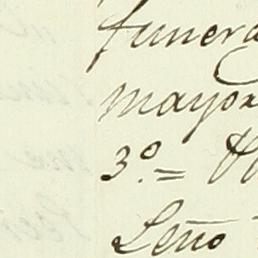 funera
mayor
3.º =
Leño